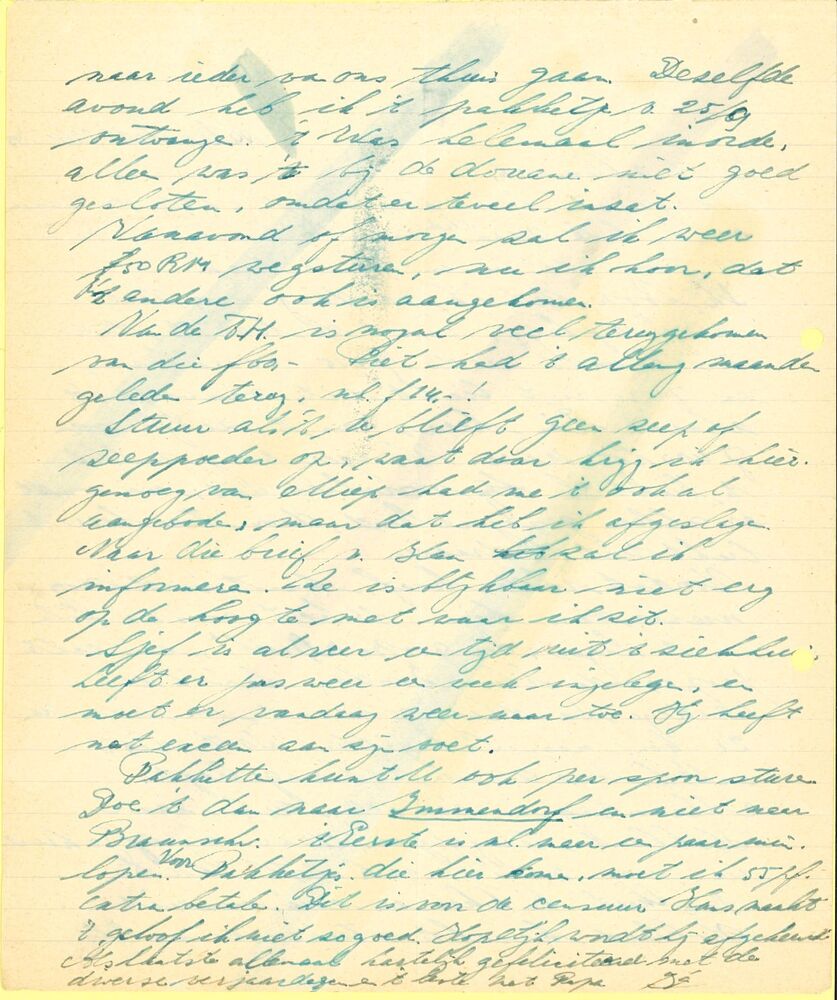 naar ieder van ons thuis gaan. Deselfde
avond heb ik 't pakketje v. 25/9
ontvange. 't Was helemaal inorde,
alleen was 't bij de douane niet goed
gesloten, omdat er teveel insat.
Vanavond of morgen sal ik weer
f50 RM wegsturen, nu ik hoor, dat
't andere ook is aangekomen.
Van de T.H. is nogal veel teruggekomen
van die f60,- Piet had 't alleng maanden
geleden terug, nl. f14,-!
Stuur als 't u blieft geen seep of
seeppoeder op, want daar krijg ik hier
genoeg van. Miep had me 't ook al
aangeboden, maar dat heb ik afgeslage.
Naar die brief v. Han sal ik
informere. Ze is blijkbaar niet erg
op de hoogte met waar ik sit.
Sjef is alweer 'n tijd uit 't siekhuis,
heeft er pas weer 'n week ingelege, en
moet er vandaag weer naar toe. Hij heeft
nat exceem aan sijn voet.
Pakkette kunt U ook per spoor sture
Doe 't dan naar Immendorf en niet naar
Braunschw. 't Eerste is nl. maar 'n paar min.
lopen. Voor Pakketjes die hier kome, moet ik 55 pf.
extra betale. Dit is voor de censuur. Hans maakt
't geloof ik niet so goed. Hopelijk wordt hij afgekeurd
Als laatste allemaal hartelijk gefeliciteerd met de
diverse verjaardagen en 't beste met Papa